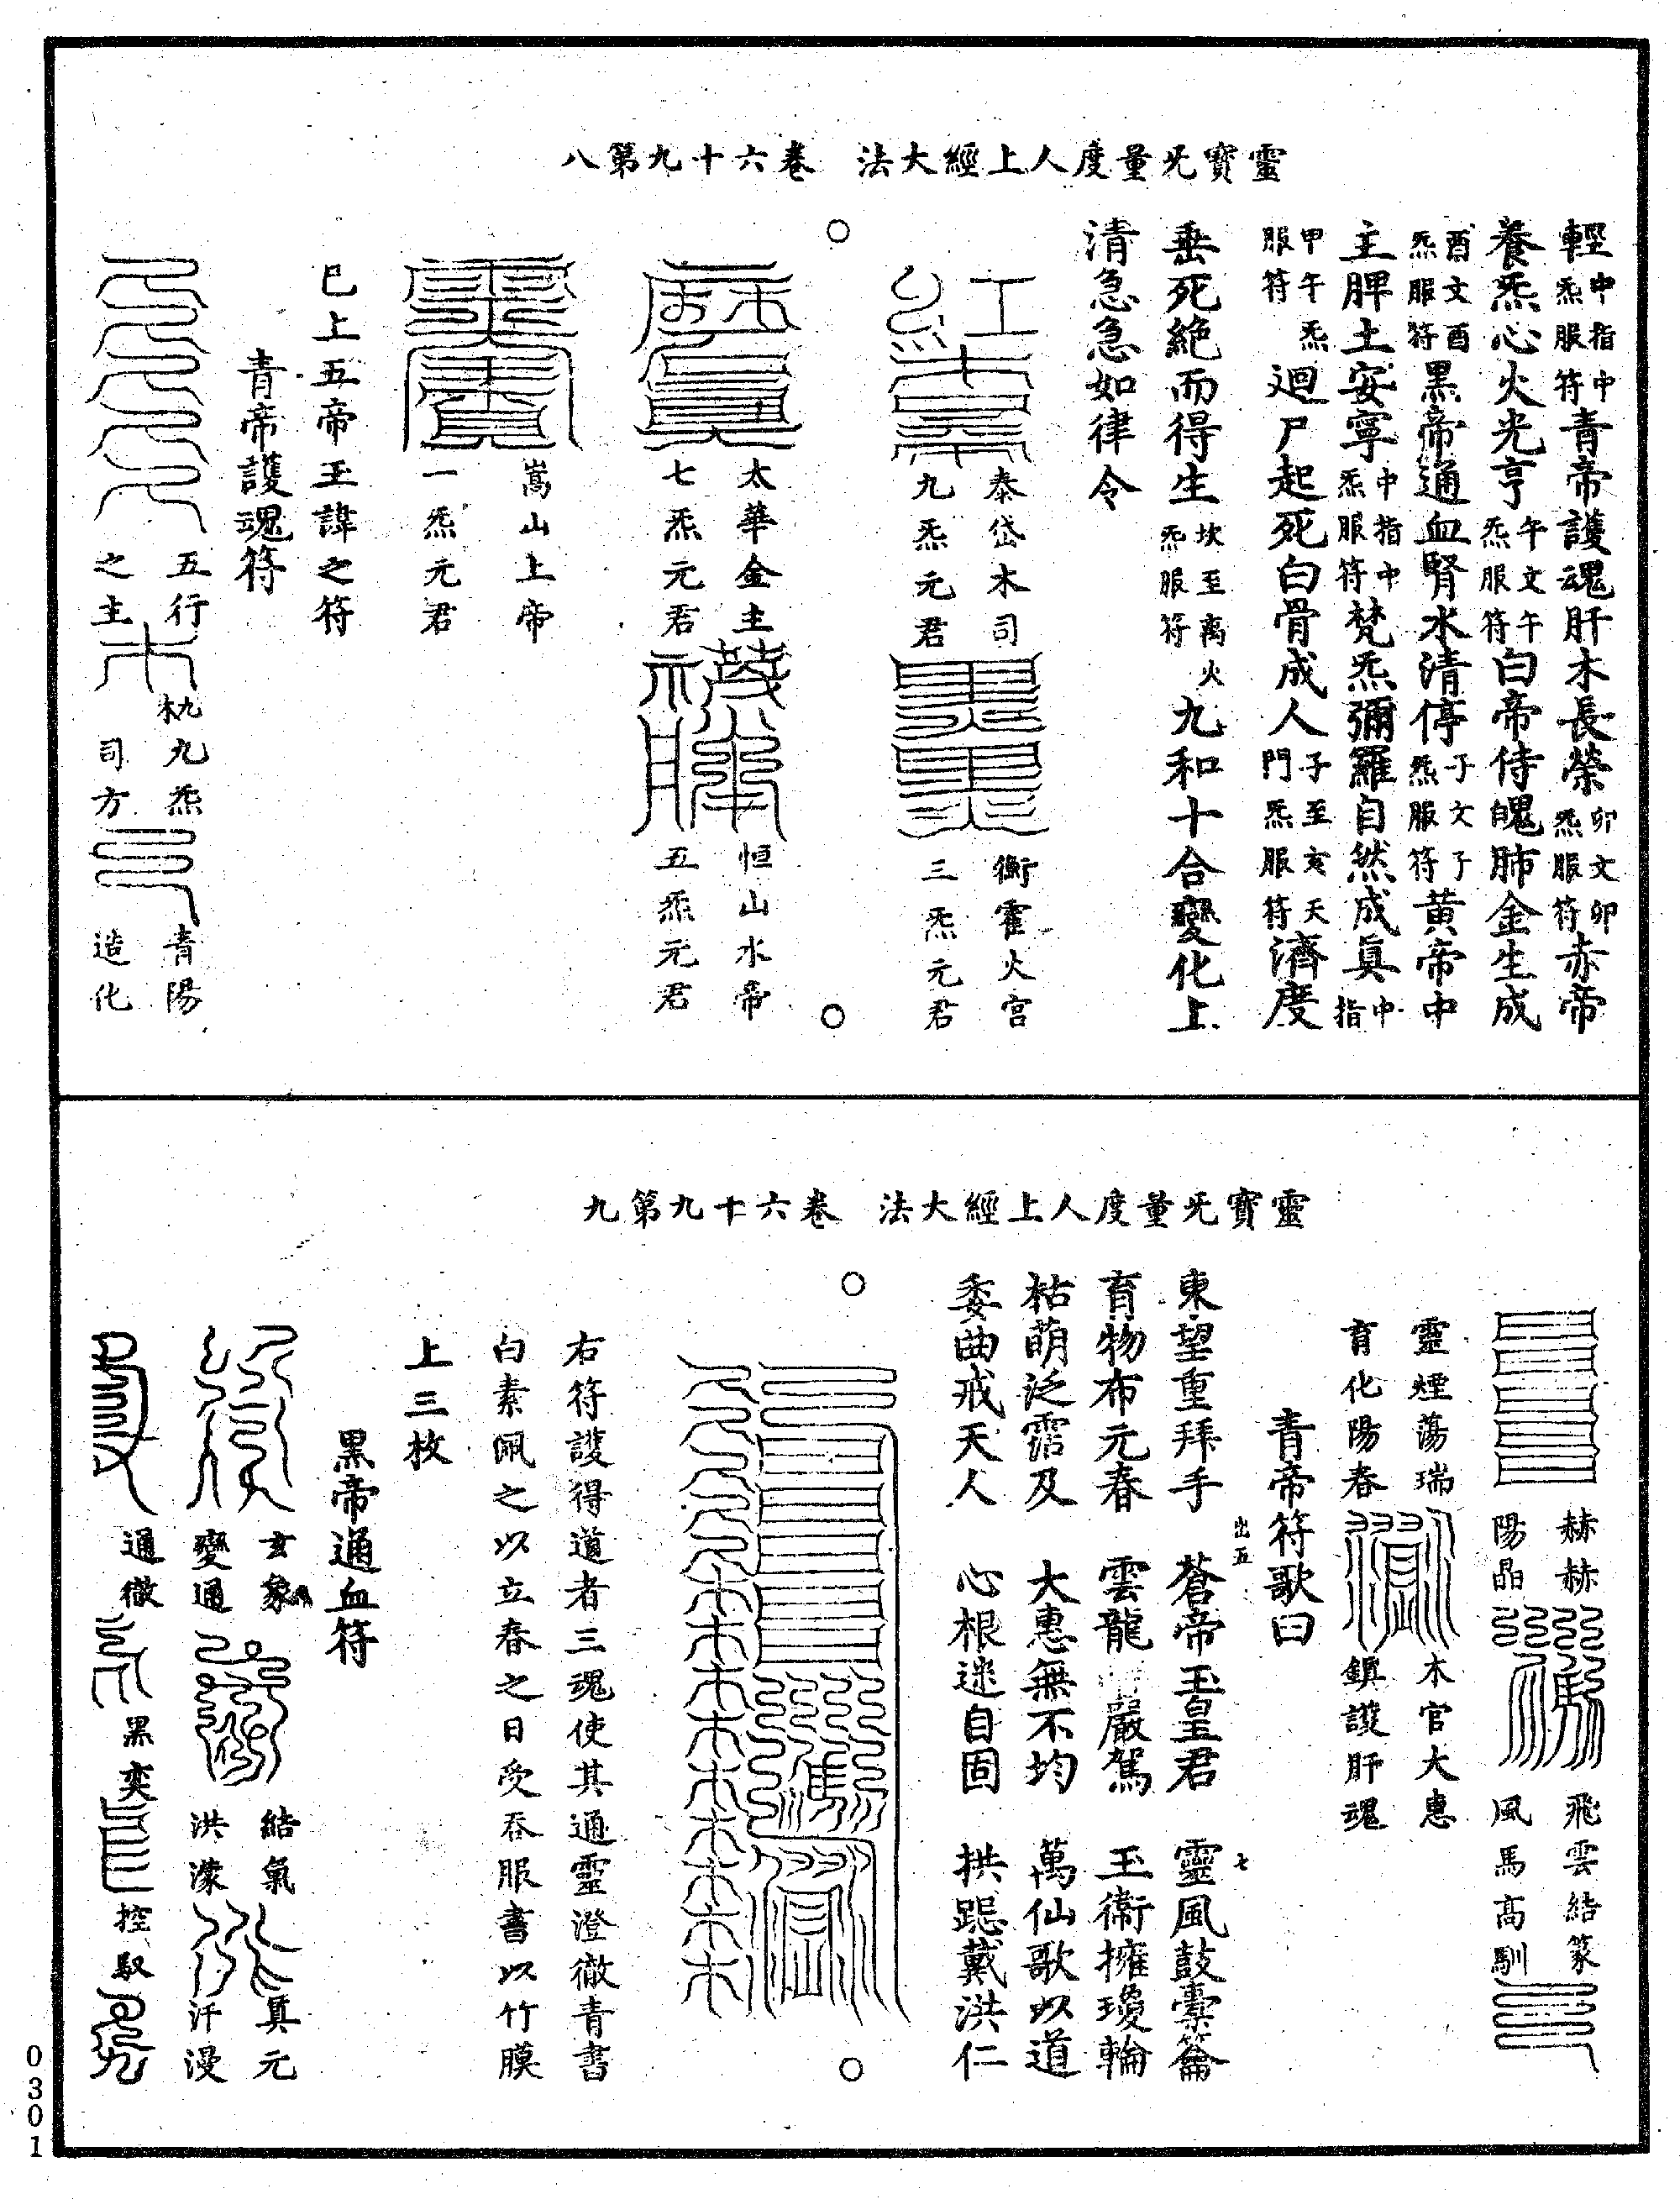 靈寶旡量度人上經大法　卷六十九第八
輕中指中炁服符青帝護魂肝木長榮卯文卯炁服符赤帝
養炁心火光亨午文午炁服符白帝侍魄肺金生成
酉文酉炁服符黑帝通血腎水清停子文子炁服符黃帝中
主脾土安寧中指中炁服符梵炁彌羅自然成真中指
甲午炁服符迴尸起死白骨成人子至亥天門炁服符濟度
垂死絶而得生坎至离火炁服符九和十合變化上
清急急如律令
泰岱木司九炁元君
衡霍火宫三炁元君
太華金主七炁元君
恒山水帝五炁元君
嵩山上帝一炁元君
巳上五帝玉諱之符
青帝護魂符
五行之主
九九炁木司方
青陽造化
靈寶旡量度人上經大法　卷六十九第九
赫赫陽晶
飛雲結篆風馬高馴
靈煙蕩瑞育化陽春
木官大惠鎮護肝魂
青帝符歌曰
出五　七
東望重拜手　蒼帝玉皇君　靈風鼓橐籥
育物布元春　雲龍嚴駕　玉衛擁瓊輪
枯萌泛霑及　大惠無不均　萬仙歌以道
委曲戒天人　心根迷自固　拱跽戴洪仁
右符護得道者三魂使其通靈澄徹青書
白素佩之以立春之日受吞服書以竹膜
上三枚
黑帝通血符
玄象變通
結氣洪濛
真元汗漫
通微
黑奕
控馭
0301